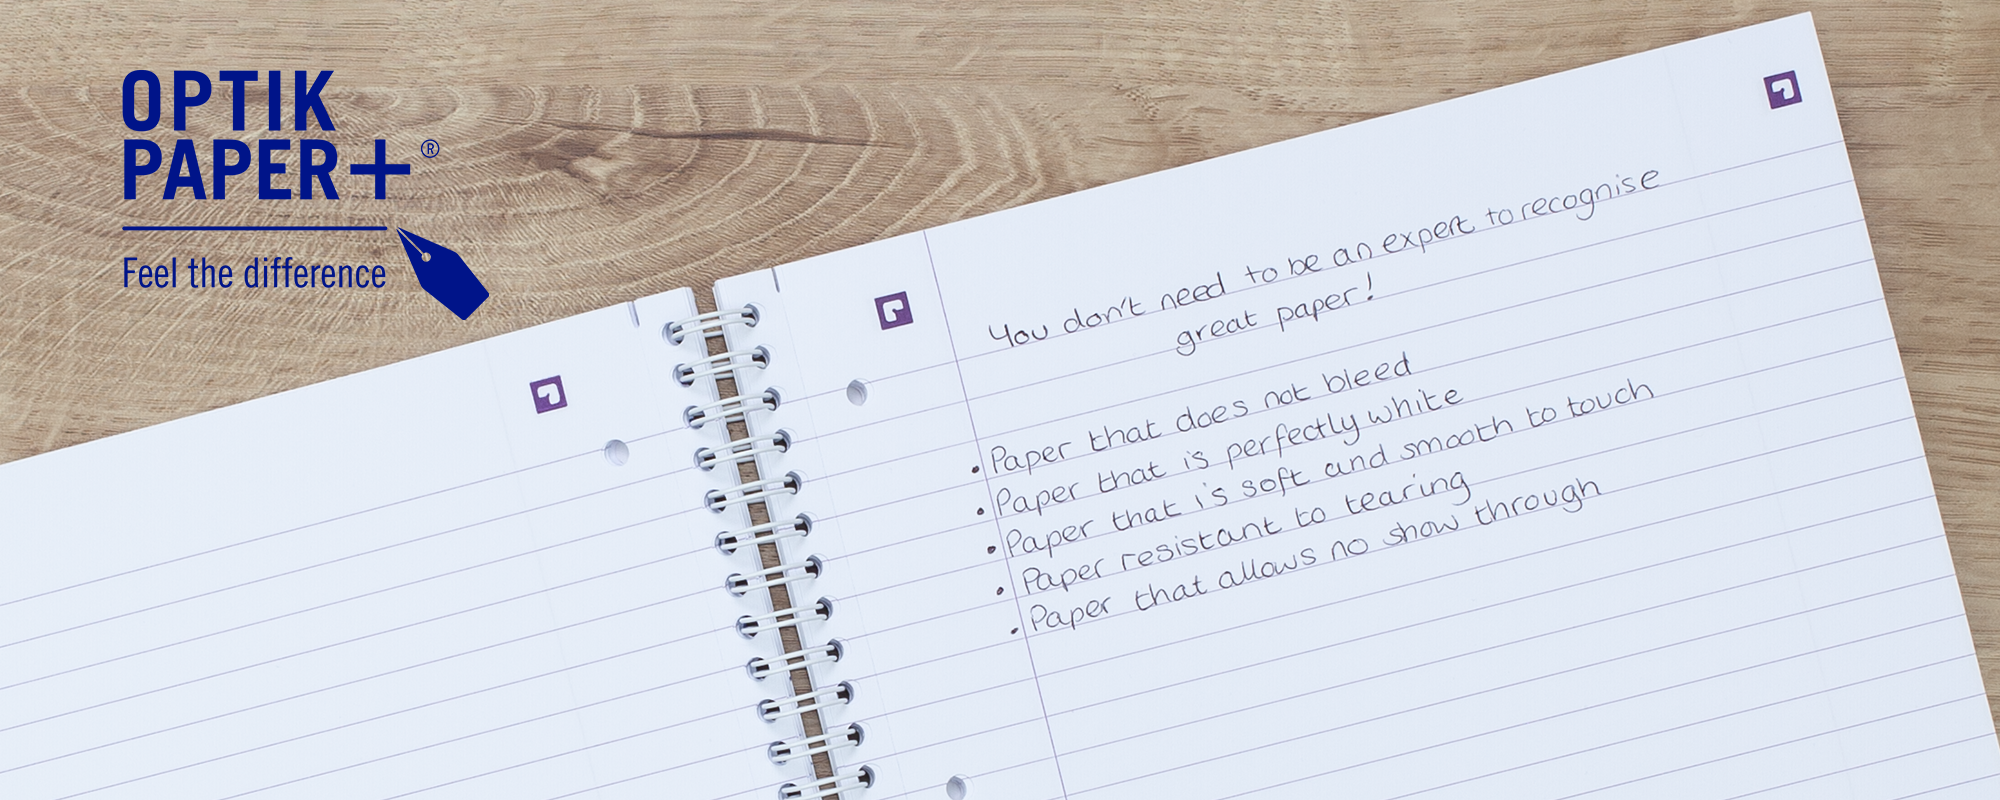 OPTIK
PAPER+®
Feel the difference
You don't need to be an expert to recognise
great paper!
• Paper that does not bleed
• Paper that is perfectly white
• Paper that is soft and smooth to touch
• Paper resistant to tearing
• Paper that allows no show through